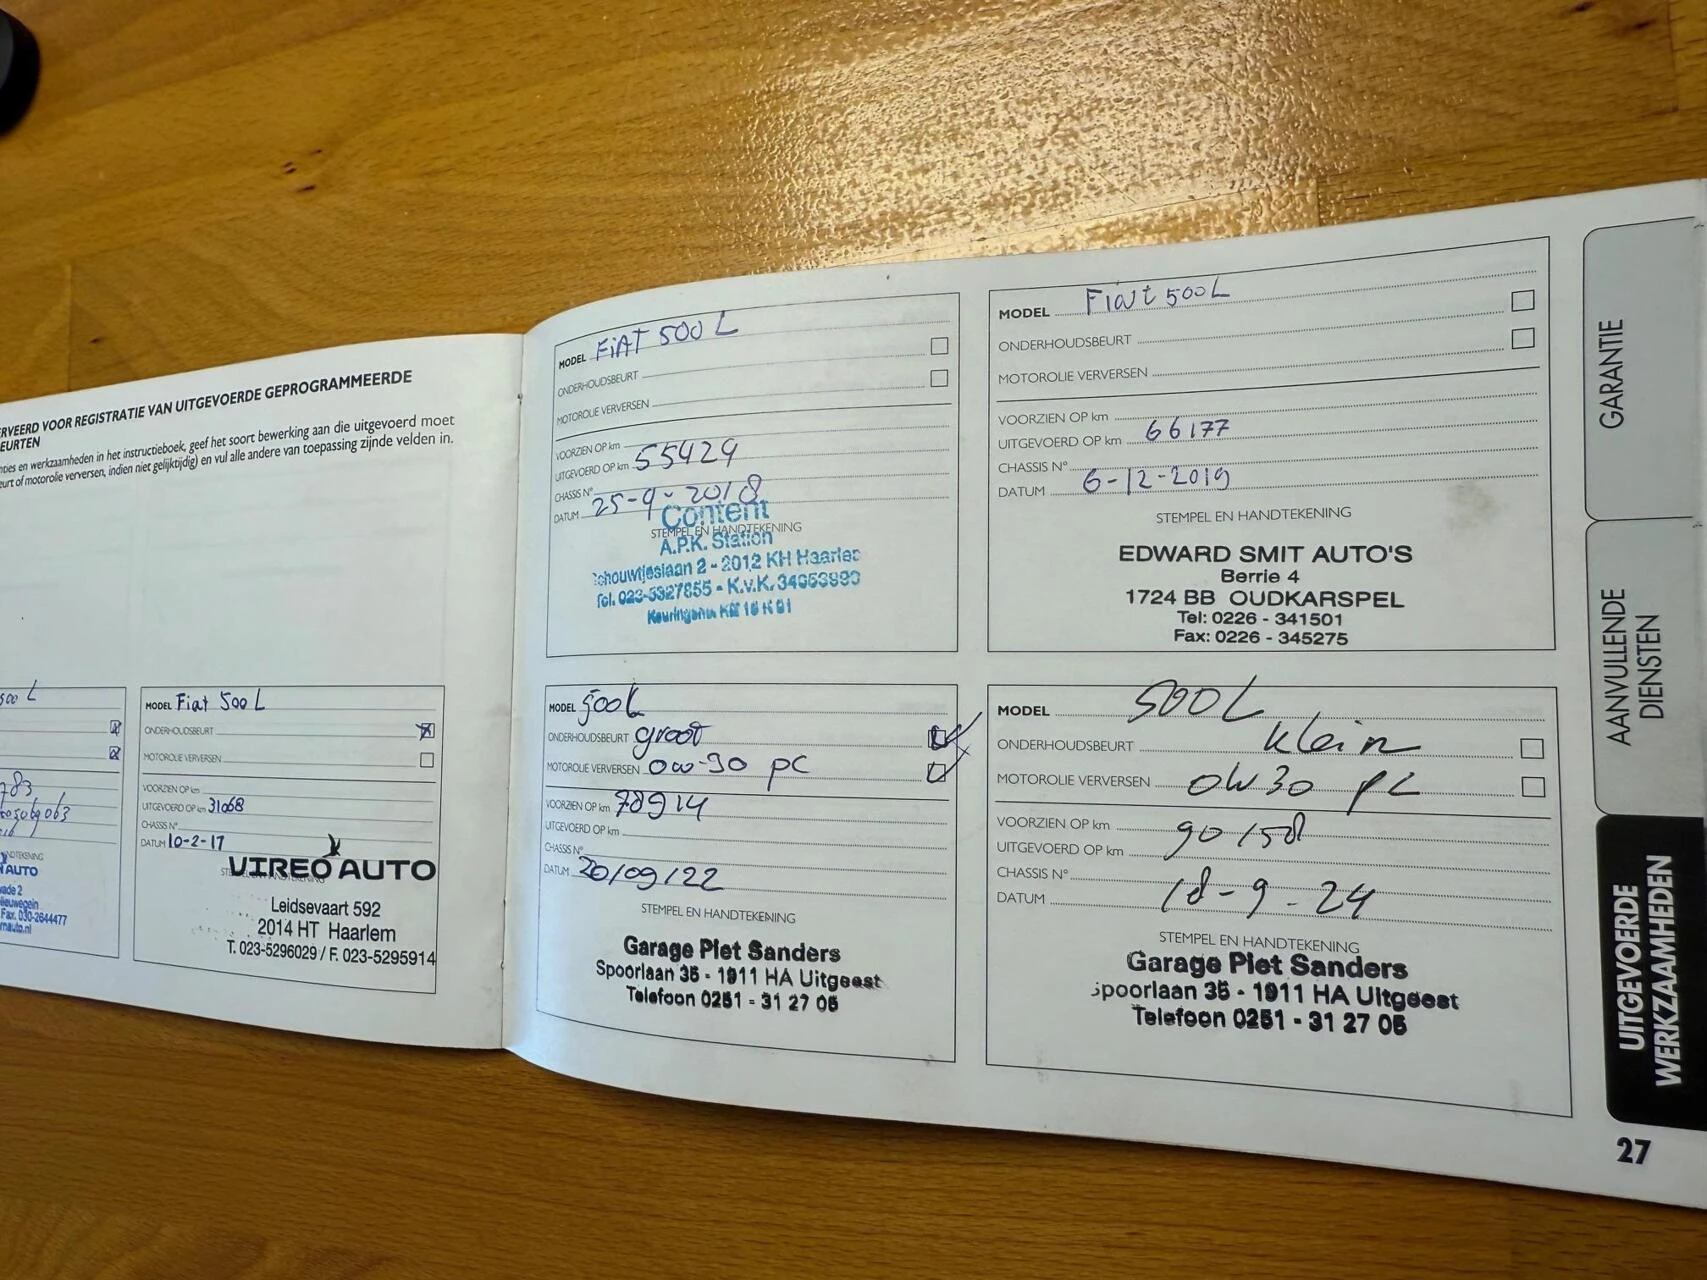 ERVEERD VOOR REGISTRATIE VAN UITGEVOERDE GEPROGRAMMEERDE
EURTEN
nties en werkzaamheden in het instructieboek, geef het soort bewerking aan die uitgevoerd moet
eurt of motorolie verversen, indien niet gelijktijdig) en vul alle andere van toepassing zijnde velden in.
500 L
783
NDTEKENING
AUTO
wade 2
Nieuwegein
Fax. 030-2644477
rnauto.nl
MODEL Fiat 500 L
ONDERHOUDSBEURT
MOTOROLIE VERVERSEN
VOORZIEN OP km
UITGEVOERD OP km 31068
CHASSIS N°
DATUM 10-2-17
VIREO AUTO
Leidsevaart 592
2014 HT Haarlem
T. 023-5296029 / F. 023-5295914
MODEL FiAT 500 L
ONDERHOUDSBEURT
MOTOROLIE VERVERSEN
VOORZIEN OP km
UITGEVOERD OP km 55429
CHASSIS N°
DATUM 25-9-2018
Content
STEMPEL EN HANDTEKENING
A.P.K. Station
Schouwtjeslaan 2 - 2012 KH Haarlem
Tel. 023-5327855 - K.v.K.
MODEL Fiat 500L
ONDERHOUDSBEURT
MOTOROLIE VERVERSEN
VOORZIEN OP km
UITGEVOERD OP km 66177
CHASSIS N°
DATUM 6-12-2019
STEMPEL EN HANDTEKENING
EDWARD SMIT AUTO'S
Berrie 4
1724 BB OUDKARSPEL
Tel: 0226 - 341501
Fax: 0226 - 345275
MODEL 500L
ONDERHOUDSBEURT groot
MOTOROLIE VERVERSEN 0w-30 pc
VOORZIEN OP km 78914
UITGEVOERD OP km
CHASSIS N°
DATUM 20/09/22
STEMPEL EN HANDTEKENING
Garage Piet Sanders
Spoorlaan 35 - 1911 HA Uitgeest
Telefoon 0251 - 31 27 05
MODEL 500L
ONDERHOUDSBEURT klein
MOTOROLIE VERVERSEN 0W30 pc
VOORZIEN OP km
UITGEVOERD OP km 90158
CHASSIS N°
DATUM 18-9-24
STEMPEL EN HANDTEKENING
Garage Piet Sanders
Spoorlaan 35 - 1911 HA Uitgeest
Telefoon 0251 - 31 27 05
GARANTIE
AANVULLENDE
DIENSTEN
UITGEVOERDE
WERKZAAMHEDEN
27